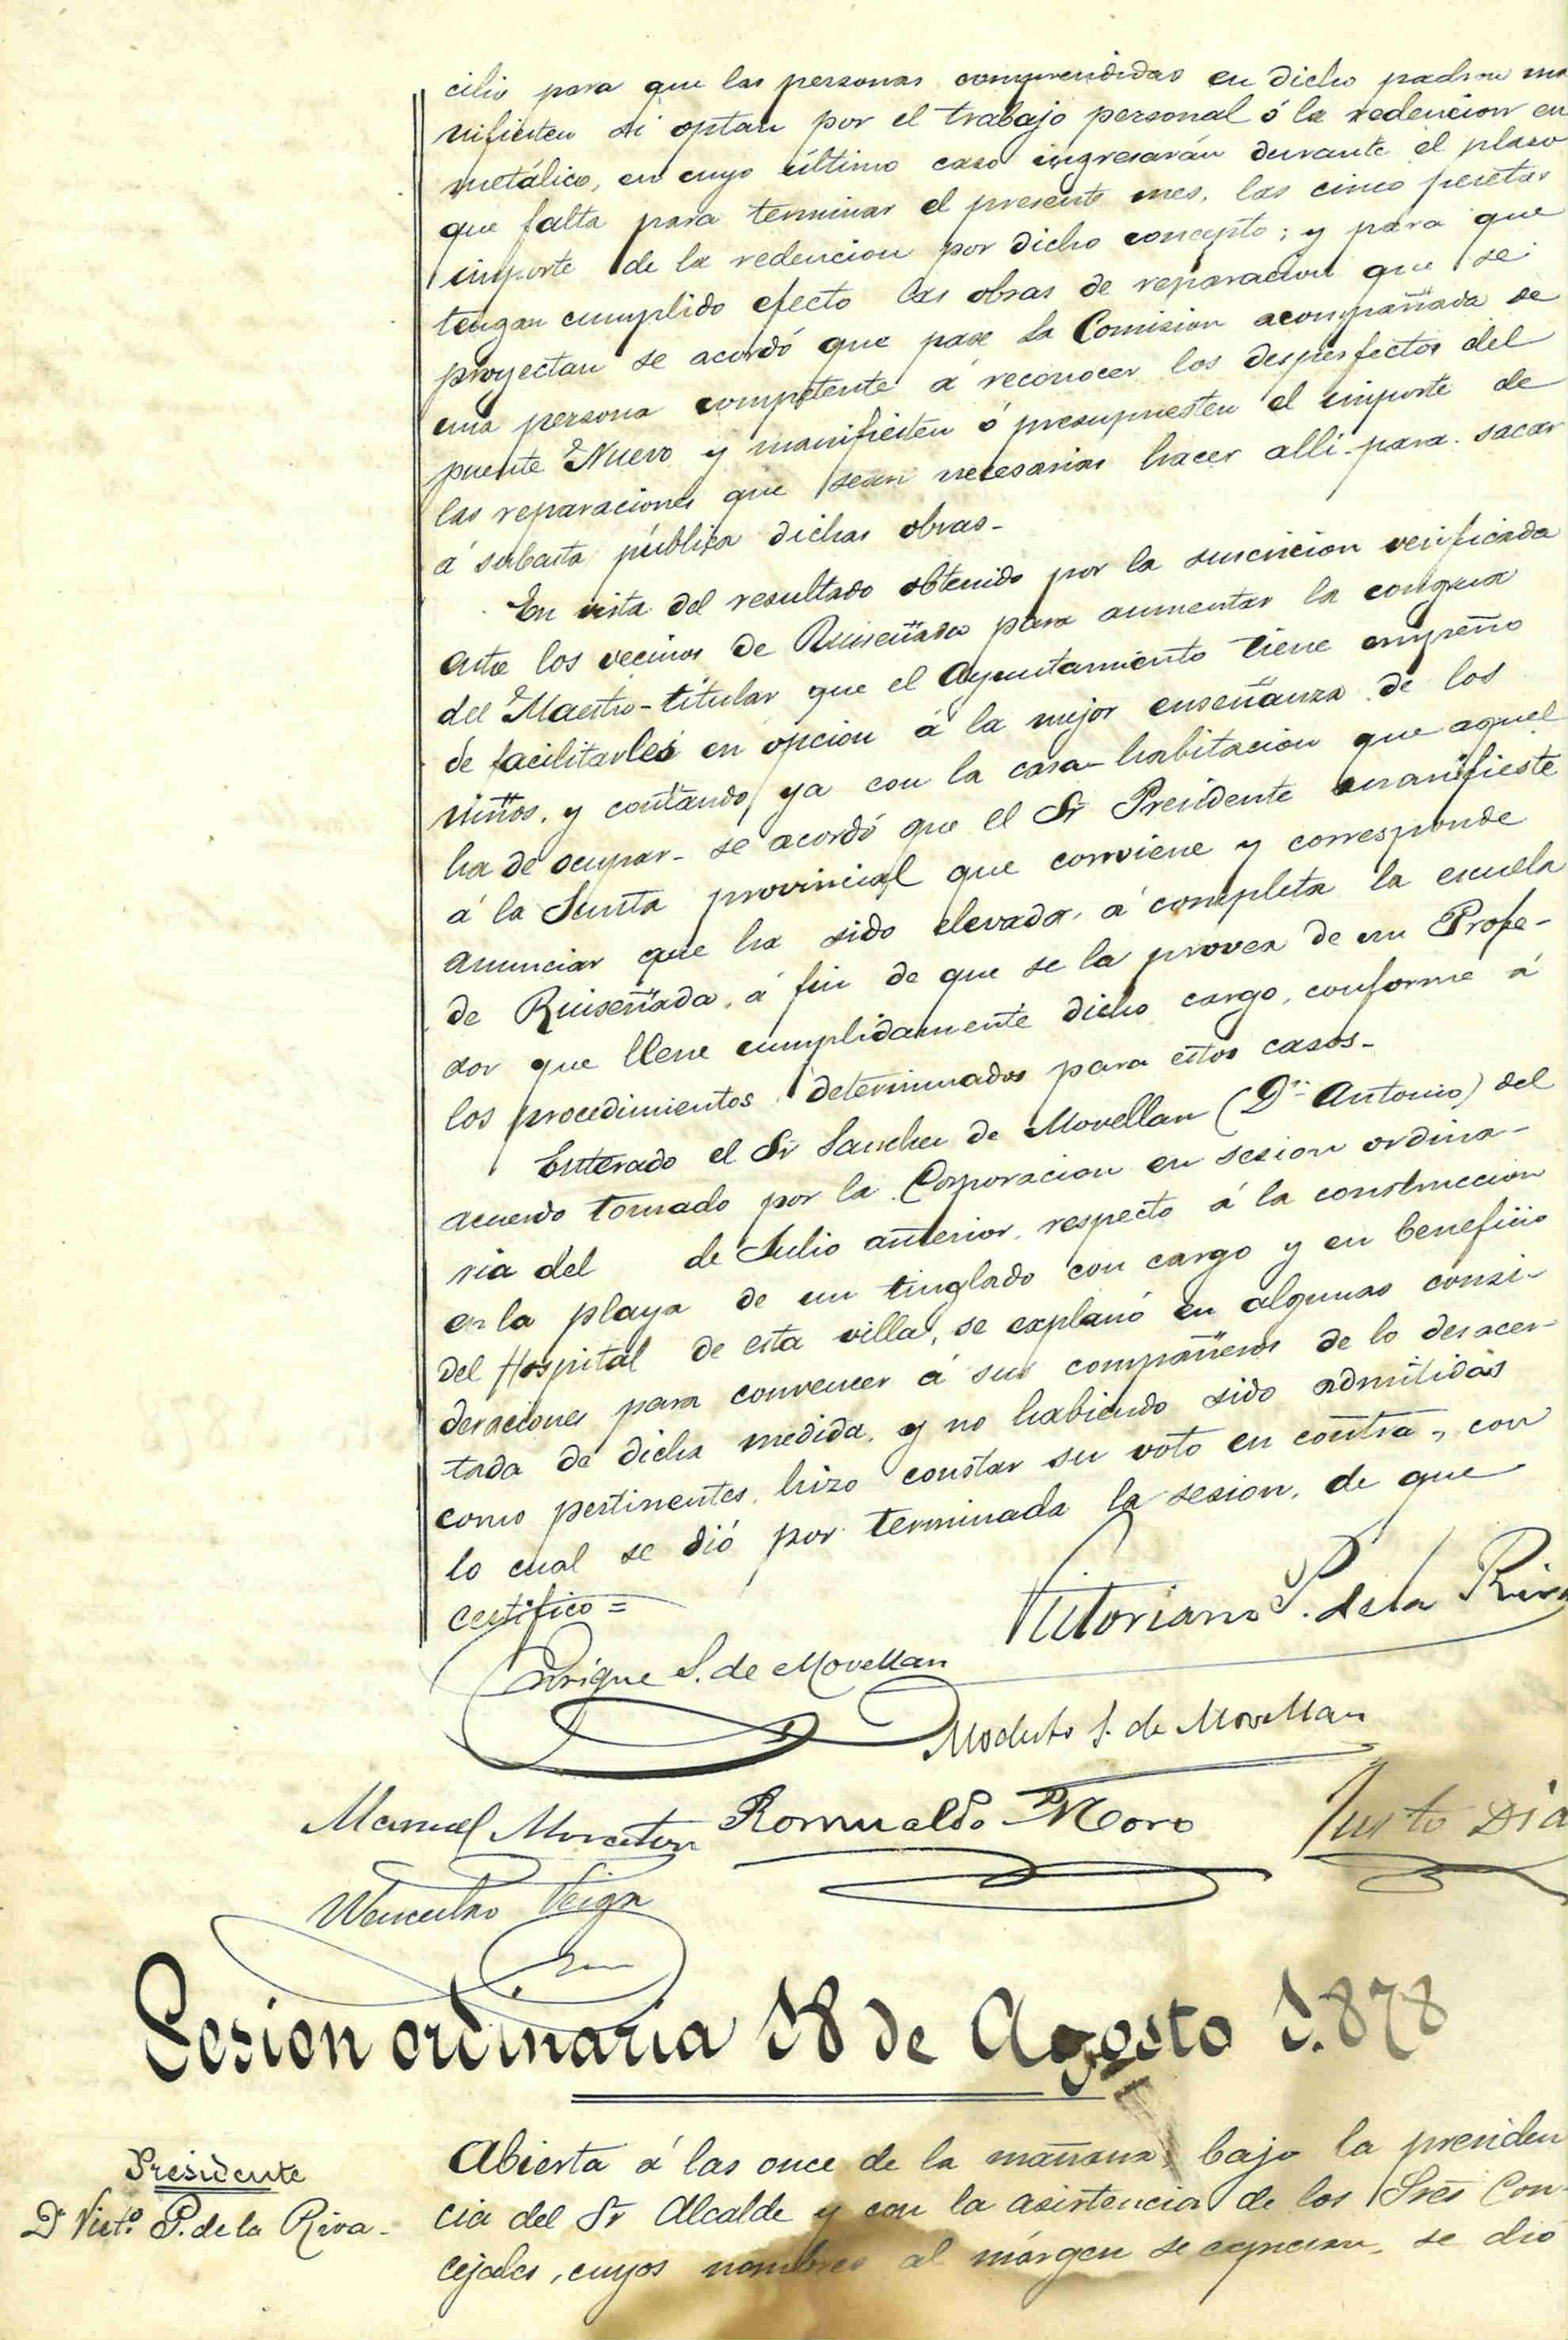 cilio para que las personas comprendidas en dicho padron ma
nifiesten si optan por el trabajo personal ó la redencion en
metálico, en cuyo último caso ingresarán durante el plazo
que falta para terminar el presente mes, las cinco pesetas
importe de la redencion por dicho concepto; y para que
tengan cumplido efecto las obras de reparacion que se
proyectan se acordó que pase la Comision acompañada de
una persona competente á reconocer los desperfectos del
puente Nuevo y manifiesten ó presupuesten el importe de
las reparaciones que sean necesarias hacer alli para sacar
á subasta pública dichas obras-
En vista del resultado obtenido por la suscricion verificada
entre los vecinos de Ruiseñada para aumentar la congrua
del Maestro-titular que el Ayuntamiento tiene empeño
de facilitarles en opcion á la mejor enseñanza de los
niños, y contando ya con la casa-habitacion que aquel
ha de ocupar- se acordó que el Sr Presidente manifieste
á la Junta provincial que conviene y corresponde
anunciar que ha sido elevada á completa la escuela
de Ruiseñada, á fin de que se la provea de un Profe-
sor que llene cumplidamente dicho cargo, conforme á
los procedimientos determinados para estos casos-
Enterado el Sr Sanchez de Movellan (Dn Antonio) del
acuerdo tomado por la Corporacion en sesion ordina-
ria del de Julio anterior, respecto á la construccion
en la playa de un tinglado con cargo y en beneficio
del Hospital de esta villa, se explanó en algunas consi-
deraciones para convencer á sus compañeros de lo desacer-
tada de dicha medida, y no habiendo sido admitidas
como pertinentes, hizo constar su voto en contra, con
lo cual se dió por terminada la sesion, de que
certifico=
Vitoriano P. de la Riva
Enrique S. de Movellan
Modesto S. de Movellan
Manuel Romualdo Moro Justo Dia
Wenceslao Veiga
Sesion ordinaria 18 de Agosto 1.878
Presidente
Dn Victo. P. de la Riva-
Abierta á las once de la mañana, bajo la presiden
cia del Sr Alcalde y con la asistencia de los Sres Con-
cejales, cuyos nombres al márgen se expresan, se dió